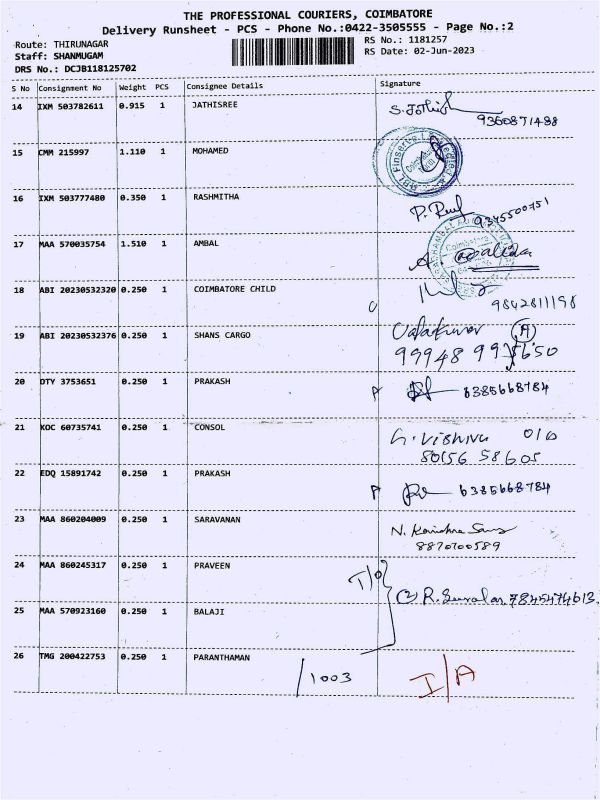 THE PROFESSIONAL COURIERS, COIMBATORE
Delivery Runsheet - PCS - Phone No.:0422-3505555 - Page No.:2
Route: THIRUNAGAR
Staff: SHANMUGAM
DRS No.: DCJB118125702
RS No.: 1181257
RS Date: 02-Jun-2023
S No Consignment No Weight PCS Consignee Details Signature
14 IXM 503782611 0.915 1 JATHISREE
9360871488
15 CMM 215997 1.110 1 MOHAMED
16 IXM 503777480 0.350 1 RASHMITHA
9345500751
17 MAA 570035754 1.510 1 AMBAL
18 ABI 20230532320 0.250 1 COIMBATORE CHILD
9842811198
19 ABI 20230532376 0.250 1 SHANS CARGO
(A)
20 DTY 3753651 0.250 1 PRAKASH
6385668784
21 KOC 60735741 0.250 1 CONSOL
G. Vishnu
80156 58605
22 EDQ 15891742 0.250 1 PRAKASH
6385668784
23 MAA 860204009 0.250 1 SARAVANAN
8870700589
24 MAA 860245317 0.250 1 PRAVEEN
(2) R. 7845474613
25 MAA 570923160 0.250 1 BALAJI
26 TMG 200422753 0.250 1 PARANTHAMAN
/1003 I/A